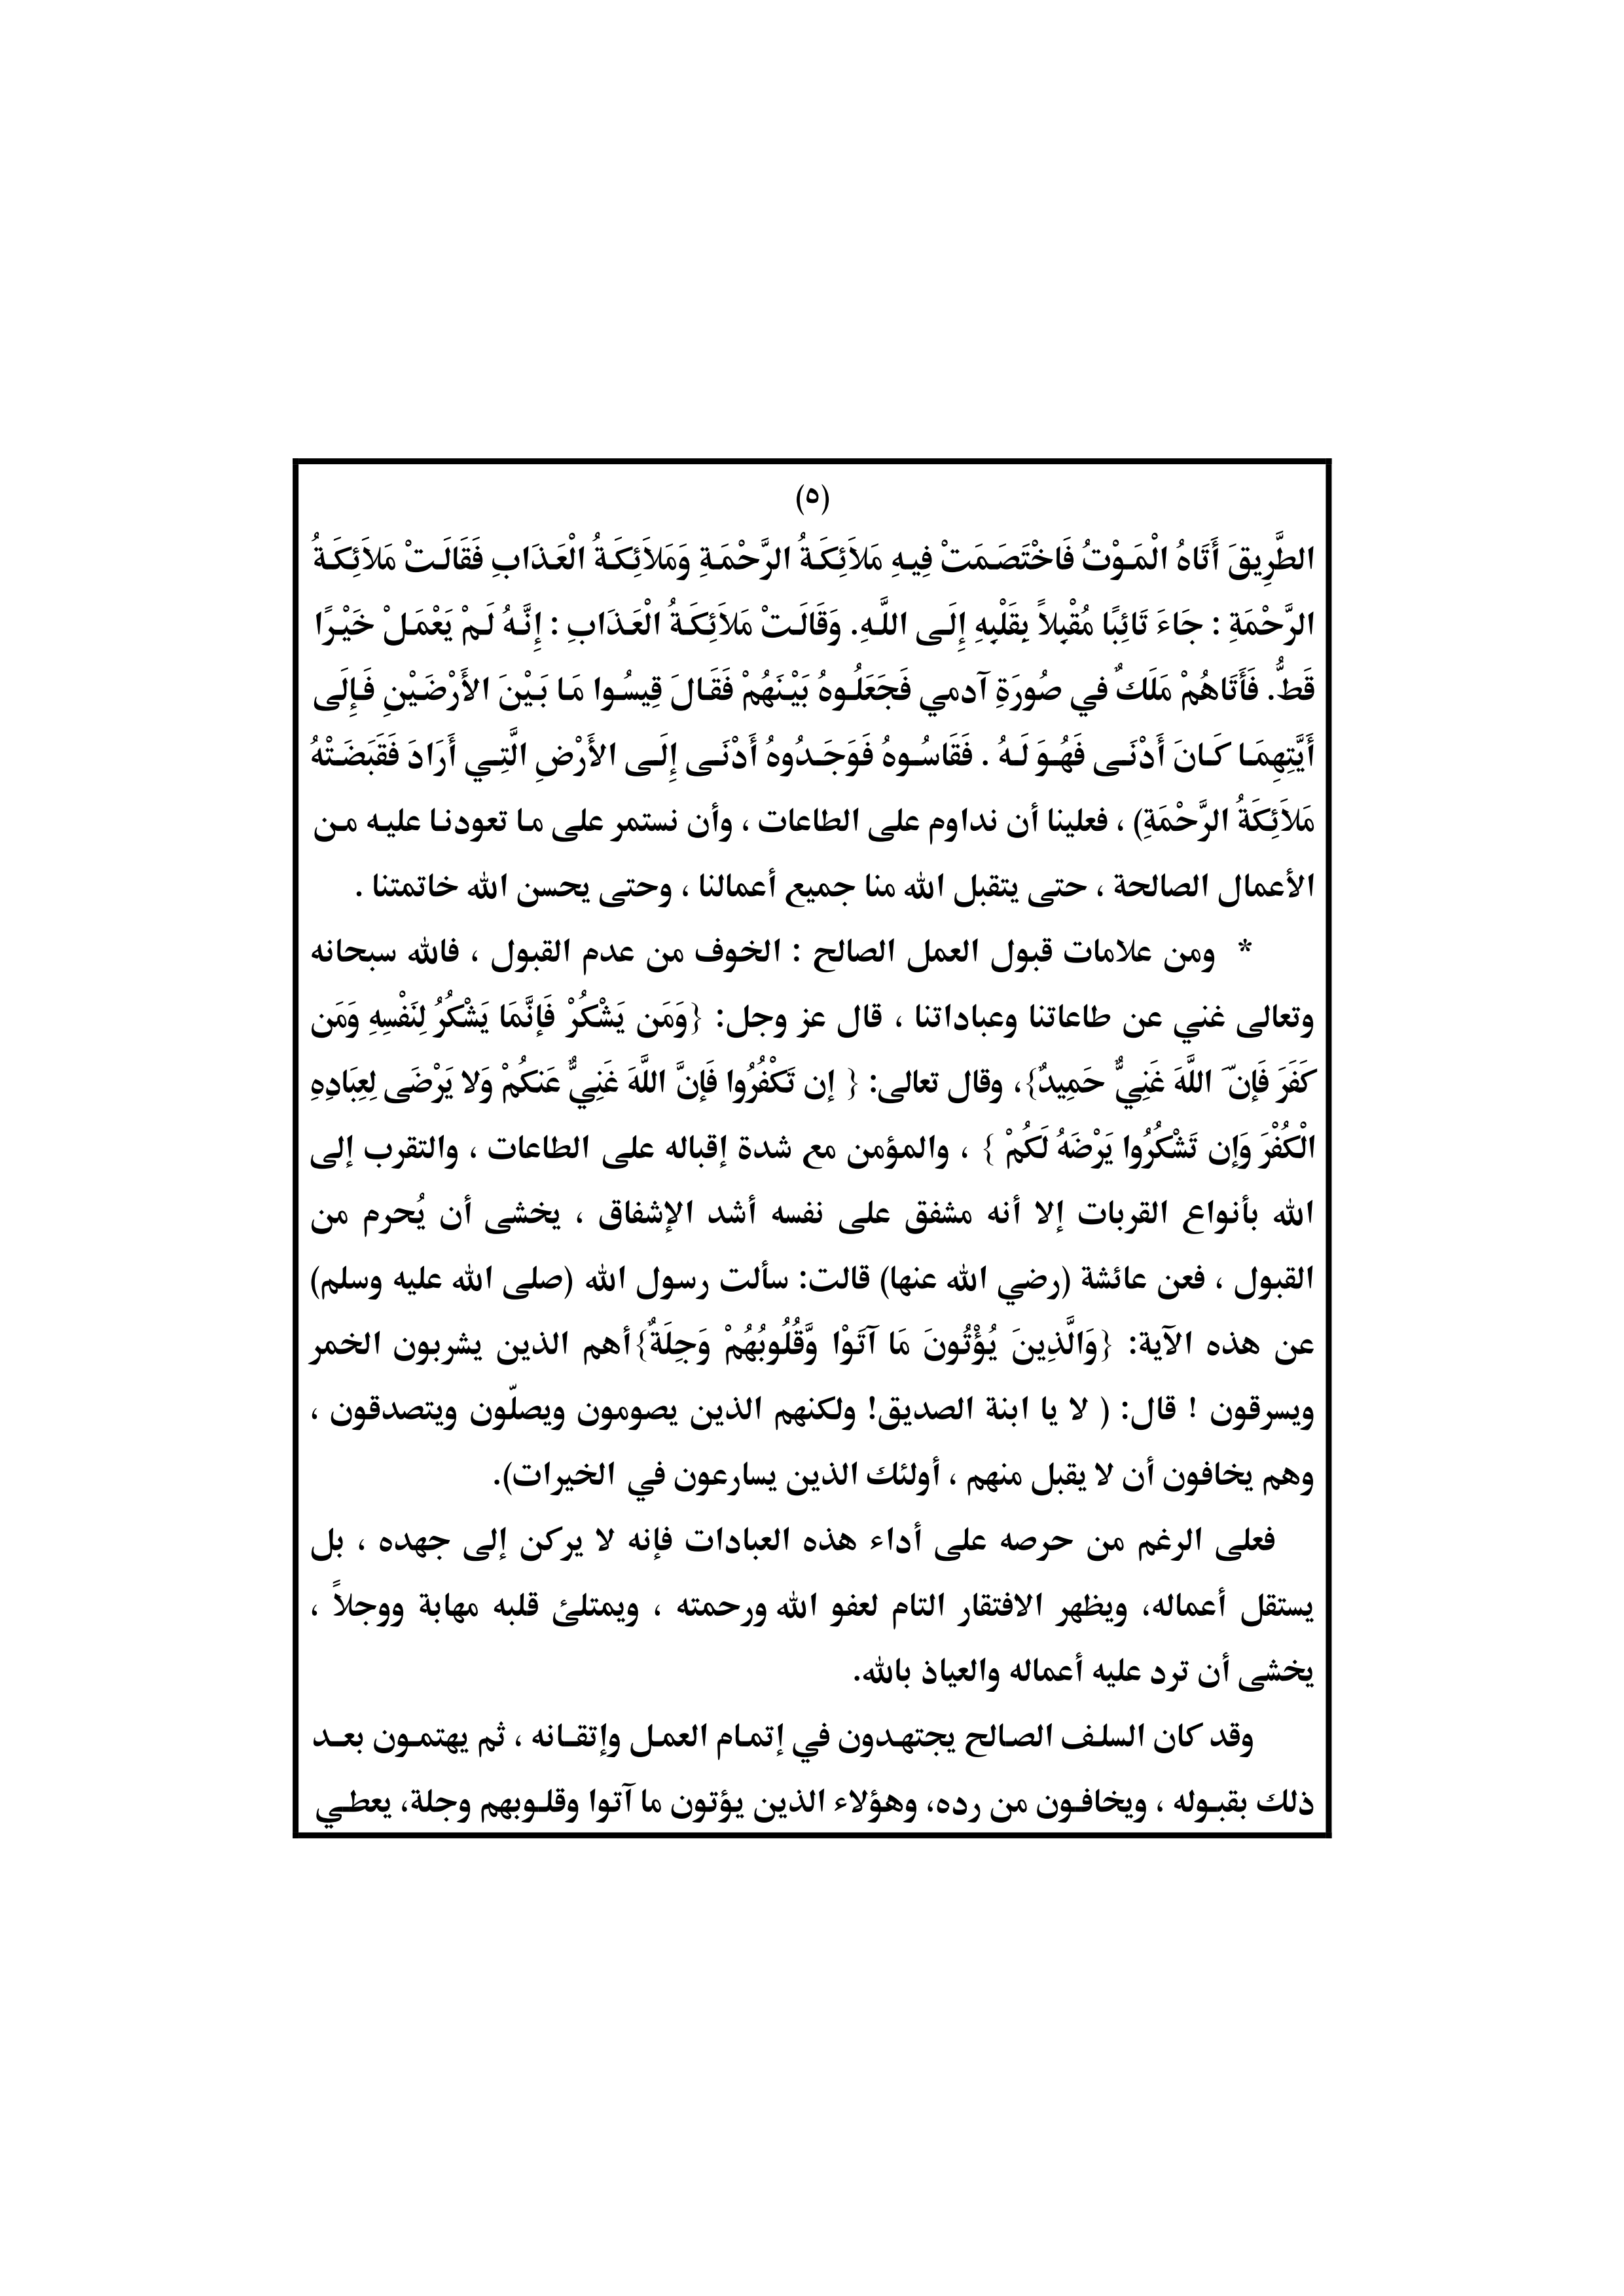 (٥)
الطَّرِيقَ أَتَاهُ الْمَوْتُ فَاخْتَصَمَتْ فِيهِ مَلاَئِكَةُ الرَّحْمَةِ وَمَلاَئِكَةُ الْعَذَابِ فَقَالَتْ مَلاَئِكَةُ
الرَّحْمَةِ : جَاءَ تَائِبًا مُقْبِلاً بِقَلْبِهِ إِلَى اللَّهِ. وَقَالَتْ مَلاَئِكَةُ الْعَذَابِ : إِنَّهُ لَمْ يَعْمَلْ خَيْرًا
قَطُّ. فَأَتَاهُمْ مَلَكٌ في صُورَةِ آدمي فَجَعَلُوهُ بَيْنَهُمْ فَقَالَ قِيسُوا مَا بَيْنَ الأَرْضَيْنِ فَإِلَى
أَيَّتِهِمَا كَانَ أَدْنَى فَهُوَ لَهُ . فَقَاسُوهُ فَوَجَدُوهُ أَدْنَى إِلَى الأَرْضِ الَّتِي أَرَادَ فَقَبَضَتْهُ
مَلاَئِكَةُ الرَّحْمَةِ) ، فعلينا أن نداوم على الطاعات ، وأن نستمر على ما تعودنا عليه من
الأعمال الصالحة ، حتى يتقبل الله منا جميع أعمالنا ، وحتى يحسن الله خاتمتنا .
* ومن علامات قبول العمل الصالح : الخوف من عدم القبول ، فالله سبحانه
وتعالى غني عن طاعاتنا وعباداتنا ، قال عز وجل: {وَمَن يَشْكُرْ فَإِنَّمَا يَشْكُرُ لِنَفْسِهِ وَمَن
كَفَرَ فَإِنَّ اللَّهَ غَنِيٌّ حَمِيدٌ}، وقال تعالى: { إِن تَكْفُرُوا فَإِنَّ اللَّهَ غَنِيٌّ عَنكُمْ وَلا يَرْضَى لِعِبَادِهِ
الْكُفْرَ وَإِن تَشْكُرُوا يَرْضَهُ لَكُمْ } ، والمؤمن مع شدة إقباله على الطاعات ، والتقرب إلى
الله بأنواع القربات إلا أنه مشفق على نفسه أشد الإشفاق ، يخشى أن يُحرم من
القبول ، فعن عائشة (رضي الله عنها) قالت: سألت رسول الله (صلى الله عليه وسلم)
عن هذه الآية: {وَالَّذِينَ يُؤْتُونَ مَا آتَوْا وَّقُلُوبُهُمْ وَجِلَةٌ}أهم الذين يشربون الخمر
ويسرقون ! قال: ( لا يا ابنة الصديق! ولكنهم الذين يصومون ويصلّون ويتصدقون ،
وهم يخافون أن لا يقبل منهم ، أولئك الذين يسارعون في الخيرات).
فعلى الرغم من حرصه على أداء هذه العبادات فإنه لا يركن إلى جهده ، بل
يستقل أعماله، ويظهر الافتقار التام لعفو الله ورحمته ، ويمتلئ قلبه مهابة ووجلاً ،
يخشى أن ترد عليه أعماله والعياذ بالله.
وقد كان السلف الصالح يجتهدون في إتمام العمل وإتقانه ، ثم يهتمون بعد
ذلك بقبوله ، ويخافون من رده، وهؤلاء الذين يؤتون ما آتوا وقلوبهم وجلة، يعطي